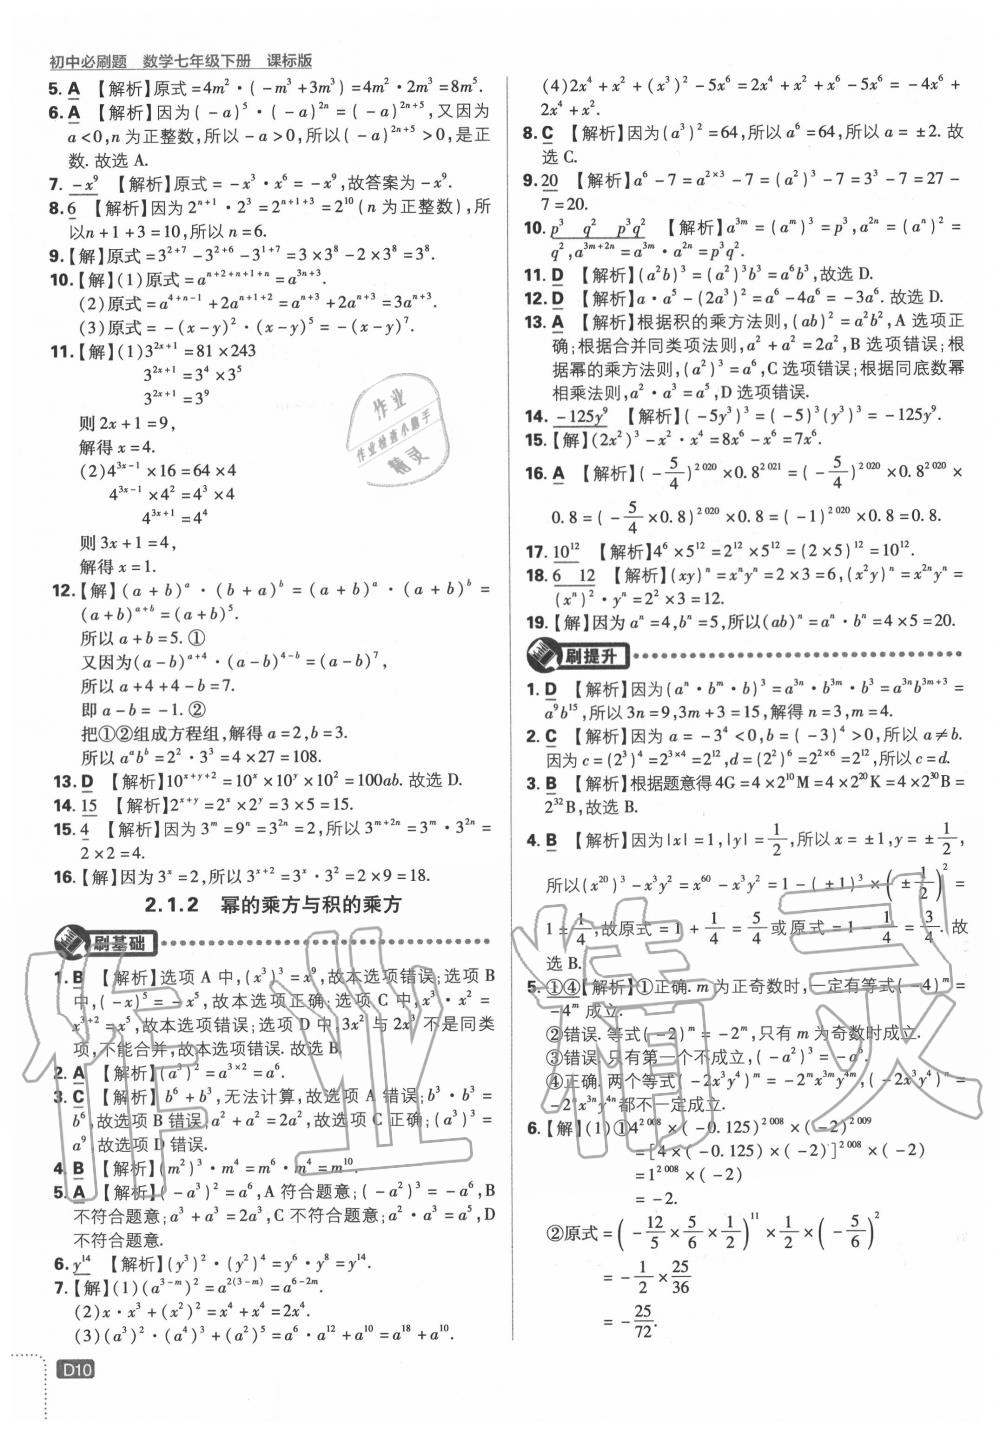 初中必刷题 数学七年级下册 课标版
5. A 【解析】原式=4m²·(-m³+3m³)=4m²·2m³=8m⁵.
6. A 【解析】因为(-a)⁵·(-a)²ⁿ=(-a)²ⁿ⁺⁵,又因为
a<0,n为正整数,所以-a>0,所以(-a)²ⁿ⁺⁵>0,是正
数.故选A.
7. -x⁹ 【解析】原式=-x³·x⁶=-x⁹,故答案为-x⁹.
8. 6 【解析】因为2ⁿ⁺¹·2³=2ⁿ⁺¹⁺³=2¹⁰(n为正整数),所
以n+1+3=10,所以n=6.
9.【解】原式=3²⁺⁷-3²⁺⁶-3¹⁺⁷=3×3⁸-2×3⁸=3⁸.
10.【解】(1)原式=aⁿ⁺²⁺ⁿ⁺¹⁺ⁿ=a³ⁿ⁺³.
(2)原式=a⁴⁺ⁿ⁻¹+2aⁿ⁺¹⁺²=aⁿ⁺³+2aⁿ⁺³=3aⁿ⁺³.
(3)原式=-(x-y)²·(x-y)⁵=-(x-y)⁷.
11.【解】(1)3²ˣ⁺¹=81×243
3²ˣ⁺¹=3⁴×3⁵
3²ˣ⁺¹=3⁹
则2x+1=9,
解得x=4.
(2)4³ˣ⁻¹×16=64×4
4³ˣ⁻¹×4²=4³×4
4³ˣ⁺¹=4⁴
则3x+1=4,
解得x=1.
12.【解】(a+b)ᵃ·(b+a)ᵇ=(a+b)ᵃ·(a+b)ᵇ=
(a+b)ᵃ⁺ᵇ=(a+b)⁵.
所以a+b=5.①
又因为(a-b)ᵃ⁺⁴·(a-b)⁴⁻ᵇ=(a-b)⁷,
所以a+4+4-b=7.
即a-b=-1.②
把①②组成方程组,解得a=2,b=3.
所以aᵃbᵇ=2²·3³=4×27=108.
13. D 【解析】10ˣ⁺ʸ⁺²=10ˣ×10ʸ×10²=100ab.故选D.
14. 15 【解析】2ˣ⁺ʸ=2ˣ×2ʸ=3×5=15.
15. 4 【解析】因为3ᵐ=9ⁿ=3²ⁿ=2,所以3ᵐ⁺²ⁿ=3ᵐ·3²ⁿ=
2×2=4.
16.【解】因为3ˣ=2,所以3ˣ⁺²=3ˣ·3²=2×9=18.
2.1.2 幂的乘方与积的乘方
刷基础
1. B 【解析】选项A中,(x³)³=x⁹,故本选项错误;选项B
中,(-x)⁵=-x⁵,故本选项正确;选项C中,x³·x²=
x³⁺²=x⁵,故本选项错误;选项D中,3x²与2x³不是同类
项,不能合并,故本选项错误.故选B.
2. A 【解析】(a³)²=a³ˣ²=a⁶.
3. C 【解析】b⁶+b³,无法计算,故选项A错误;b³·b³=
b⁶,故选项B错误;a²+a²=2a²,故选项C正确;(a³)³=
a⁹,故选项D错误.
4. B 【解析】(m²)³·m⁴=m⁶·m⁴=m¹⁰.
5. A 【解析】(-a³)²=a⁶,A符合题意;(-a²)³=-a⁶,B
不符合题意;a³+a³=2a³,C不符合题意;a²·a³=a⁵,D
不符合题意.
6. y¹⁴ 【解析】(y³)²·(y²)⁴=y⁶·y⁸=y¹⁴.
7.【解】(1)(a³⁻ᵐ)²=a²⁽³⁻ᵐ⁾=a⁶⁻²ᵐ.
(2)x·x³+(x²)²=x⁴+x⁴=2x⁴.
(3)(a³)²·(a⁴)³+(a²)⁵=a⁶·a¹²+a¹⁰=a¹⁸+a¹⁰.
D10
(4)2x⁴+x²+(x³)²-5x⁶=2x⁴+x²+x⁶-5x⁶=-4x⁶+
2x⁴+x².
8. C 【解析】因为(a³)²=64,所以a⁶=64,所以a=±2.故
选C.
9. 20 【解析】a⁶-7=a²ˣ³-7=(a²)³-7=3³-7=27-
7=20.
10. p³ q² p³q² 【解析】a³ᵐ=(aᵐ)³=p³,a²ⁿ=(aⁿ)²=
q²,a³ᵐ⁺²ⁿ=a³ᵐ·a²ⁿ=p³q².
11. D 【解析】(a²b)³=(a²)³b³=a⁶b³,故选D.
12. D 【解析】a·a⁵-(2a³)²=a⁶-4a⁶=-3a⁶.故选D.
13. A 【解析】根据积的乘方法则,(ab)²=a²b²,A选项正
确;根据合并同类项法则,a²+a²=2a²,B选项错误;根
据幂的乘方法则,(a²)³=a⁶,C选项错误;根据同底数幂
相乘法则,a²·a³=a⁵,D选项错误.
14. -125y⁹ 【解析】(-5y³)³=(-5)³(y³)³=-125y⁹.
15.【解】(2x²)³-x²·x⁴=8x⁶-x⁶=7x⁶.
16. A 【解析】(-5/4)²⁰²⁰×0.8²⁰²¹=(-5/4)²⁰²⁰×0.8²⁰²⁰×
0.8=(-5/4×0.8)²⁰²⁰×0.8=(-1)²⁰²⁰×0.8=0.8.
17. 10¹² 【解析】4⁶×5¹²=2¹²×5¹²=(2×5)¹²=10¹².
18. 6 12 【解析】(xy)ⁿ=xⁿyⁿ=2×3=6,(x²y)ⁿ=x²ⁿyⁿ=
(xⁿ)²·yⁿ=2²×3=12.
19.【解】因为aⁿ=4,bⁿ=5,所以(ab)ⁿ=aⁿ·bⁿ=4×5=20.
刷提升
1. D 【解析】因为(aⁿ·bᵐ·b)³=a³ⁿ·b³ᵐ·b³=a³ⁿb³ᵐ⁺³=
a⁹b¹⁵,所以3n=9,3m+3=15,解得n=3,m=4.
2. C 【解析】因为a=-3⁴<0,b=(-3)⁴>0,所以a≠b.
因为c=(2³)⁴=2³ˣ⁴=2¹²,d=(2²)⁶=2²ˣ⁶=2¹²,所以c=d.
3. B 【解析】根据题意得4G=4×2¹⁰M=4×2²⁰K=4×2³⁰B=
2³²B,故选B.
4. B 【解析】因为|x|=1,|y|=1/2,所以x=±1,y=±1/2,
所以(x²⁰)³-x³y²=x⁶⁰-x³y²=1-(±1)³×(±1/2)²=
1±1/4,故原式=1+1/4=5/4或原式=1-1/4=3/4.故
选B.
5. ①④【解析】①正确.m为正奇数时,一定有等式(-4)ᵐ=
-4ᵐ成立.
②错误.等式(-2)ᵐ=-2ᵐ,只有m为奇数时成立.
③错误.只有第一个不成立,(-a²)³=-a⁶.
④正确.两个等式(-2x³y⁴)ᵐ=-2ᵐx³ᵐy⁴ᵐ,(-2x³y⁴)ⁿ=
-2ⁿx³ⁿy⁴ⁿ都不一定成立.
6.【解】(1)①4²⁰⁰⁸×(-0.125)²⁰⁰⁸×(-2)²⁰⁰⁹
=[4×(-0.125)×(-2)]²⁰⁰⁸×(-2)
=1²⁰⁰⁸×(-2)
=-2.
②原式=(-12/5×5/6×1/2)¹¹×1/2×(-5/6)²
=-1/2×25/36
=-25/72.
作业
作业检查小助手
精灵
作业精灵